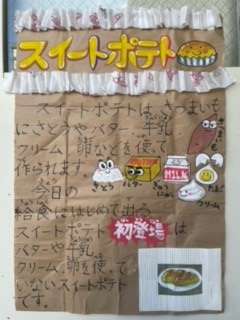 スイートポテト
スイートポテトは、さつまいも
にさとうやバター、牛乳、
クリーム、卵などを使って
作られます。
さとう
バター
MILK
たまご
クリーム
今日の
給食にはじめて出る
スイートポテト 初登場 は
バターや牛乳、
クリーム、卵を使って
いないスイートポテト
です。